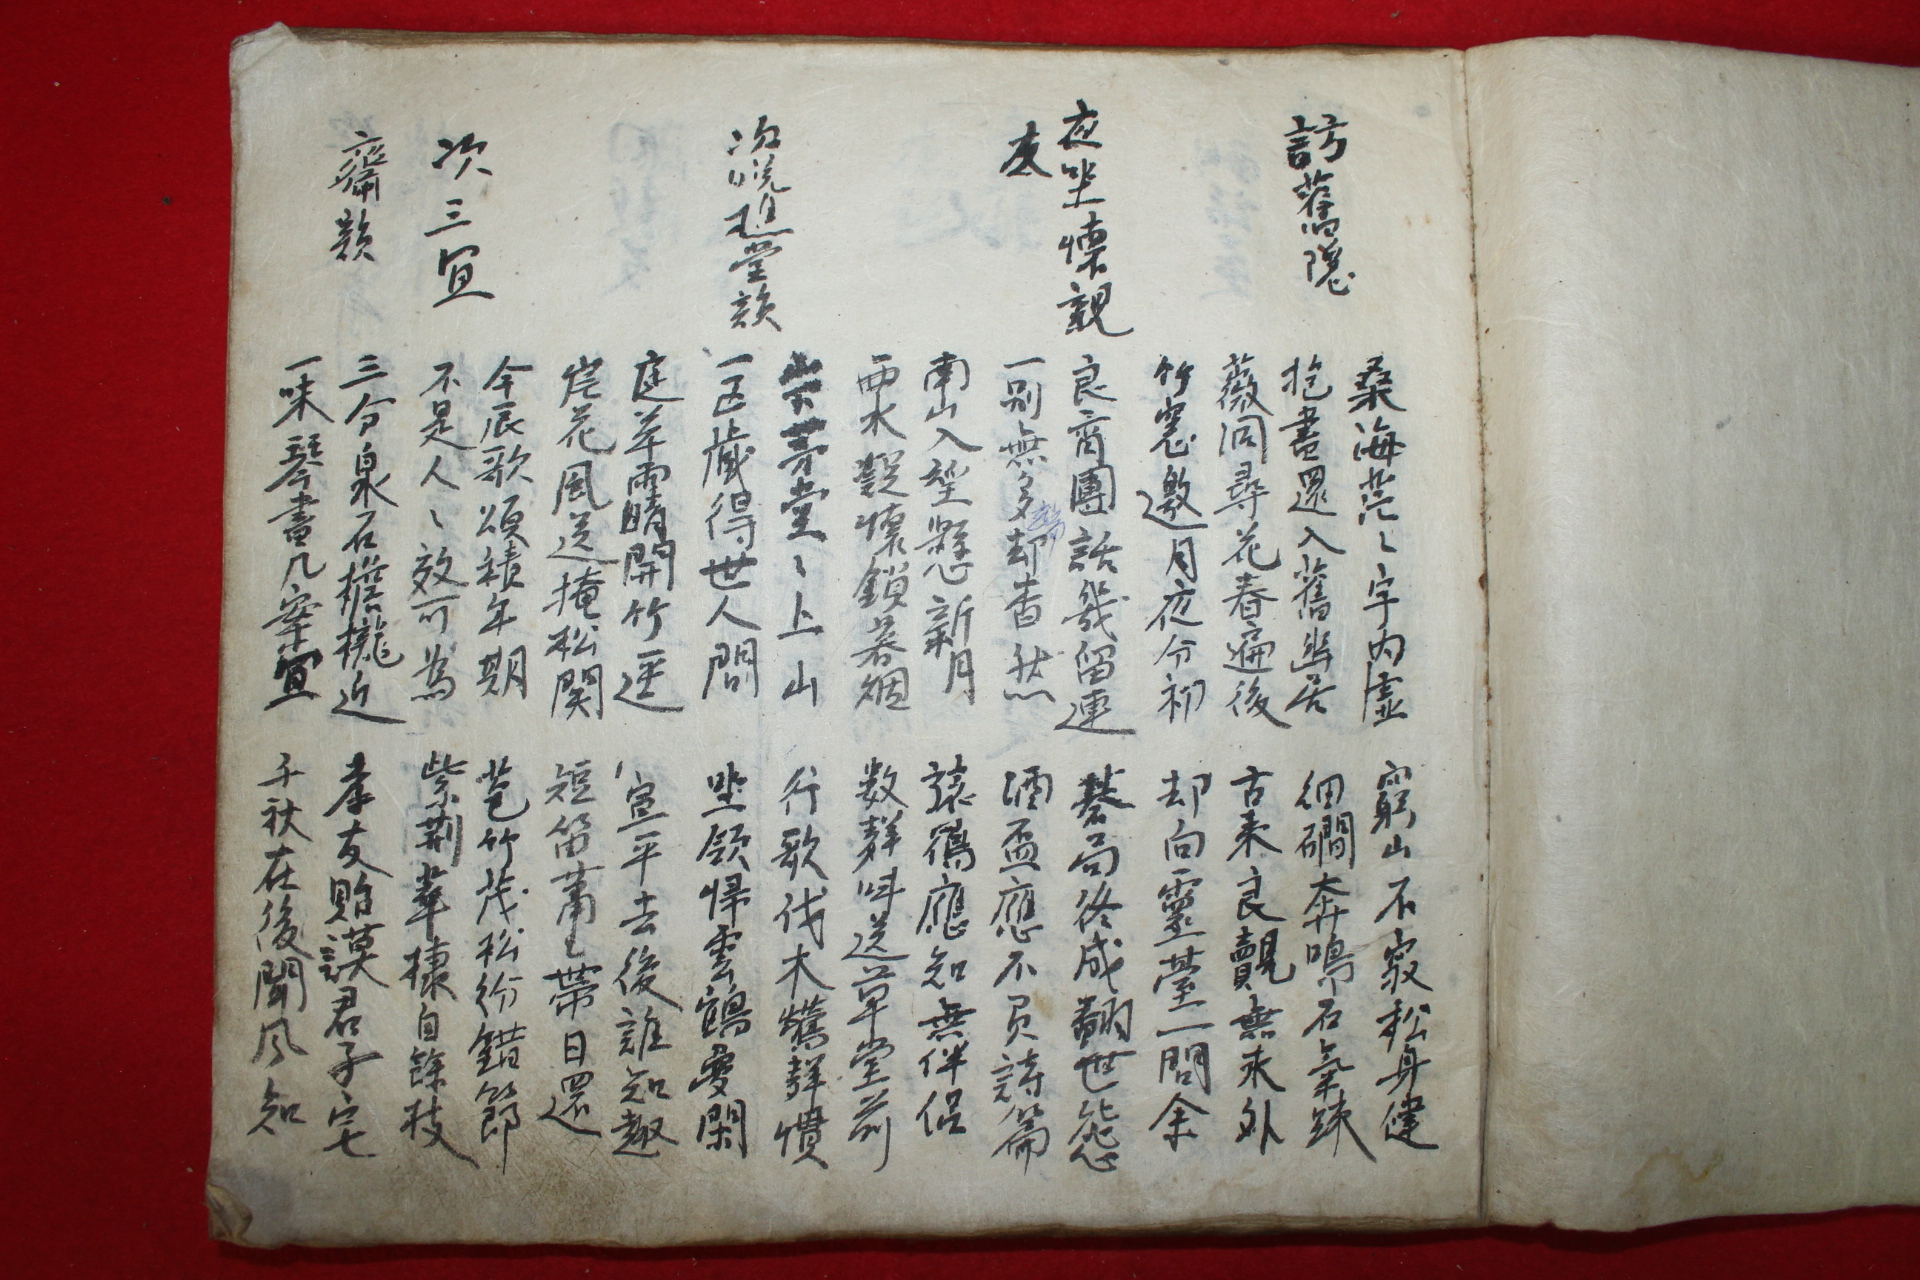 訪舊隱
桑海茫〻宇內虛 窮山不寂松身健
抱書還入舊幽居 細磵奔鳴石氣踈
薇洞尋花春遍後 古來良覿無求外
竹窓邀月夜分初 却向靈臺一問余
夜坐懷親
友
良宵團話幾留連 碁局終成翻世態
一別無多却杳然 酒盃應不負詩篇
南山入望懸新月 猿鶴應知無伴侶
西水疑懷鎖暮烟 数聲呌送草堂前
次悅樵堂韻
茅堂〻上山 行歌伐木鶯聲慣
一區藏得世人間 坐領帰雲鶴夢閑
庭草雨晴開竹逕 宣平去後誰知趣
岸花風送掩松関 短笛蕭〻帶日還
次三宜
齋韻
今辰歌頌積年期 苞竹茂松紛錯節
不是人〻效可為 紫荊華棣自餘枝
三分泉石檐櫳近 孝友貽謨君子宅
一味琴書几案宜 千秋在後聞風知